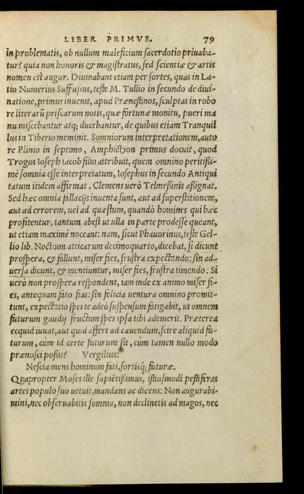 LIBER PRIMVS. 79
in problematis, ob nullum maleficium sacerdotio priuaba-
tur? quia non honoris & magistratus, sed scientiæ & artis
nomen est augur. Diuinabant etiam per sortes, quas in La-
tio Numerius Suffusius, teste M. Tullio in secundo de diui-
natione, primus inuenit, apud Prænestinos, sculptas in robo
re literarum priscarum notis, quæ fortunæ monitu, pueri ma
nu miscebantur atq; ducebantur, de quibus etiam Tranquil
lus in Tiberio meminit. Somniorum interpretationem, auto
re Plinio in septimo, Amphictyon primus docuit, quod
Trogus Ioseph Iacob filio attribuit, quem omnino peritissi-
mè somnia esse interpretatum, Iosephus in secundo Antiqui
tatum itidem affirmat. Clemens uerò Telmessinis assignat.
Sed hæc omnia fallacijs inuenta sunt, aut ad superstitionem,
aut ad errorem, uel ad quæstum, quandò homines qui hæc
profitentur, tantum abest ut ulla in parte prodesse queant,
ut etiam maximè noceant: nam, sicut Phauorinus, teste Gel-
lio lib. Noctium atticarum decimoquarto, dicebat, si dicunt
prospera, & fallunt, miser fies, frustra expectando: sin ad-
uersa dicunt, & mentiuntur, miser fies, frustra timendo. Si
uerò non prospera respondent, iam inde ex animo miser fi-
es, antequam fato fias: sin felicia uentura omnino promit-
tunt, expectatio spei te adeò suspensum fatigabit, ut omnem
futurum gaudij fructum spes ipsa tibi ademerit. Præterea
ecquid iuuat, aut quid affert ad cauendum, scire aliquid fu-
turum, cum id certe futurum sit, cum tamen nullo modo
prænosci possit? Vergilius:
Nescia mens hominum fati, sortisq́; futuræ.
Quapropter Moses ille sapiētissimus, istiusmodi pestiferas
artes populo suo uetuit, mandans ac dicens: Non augurabi-
mini, nec obseruabitis somnia, non declinetis ad magos, nec